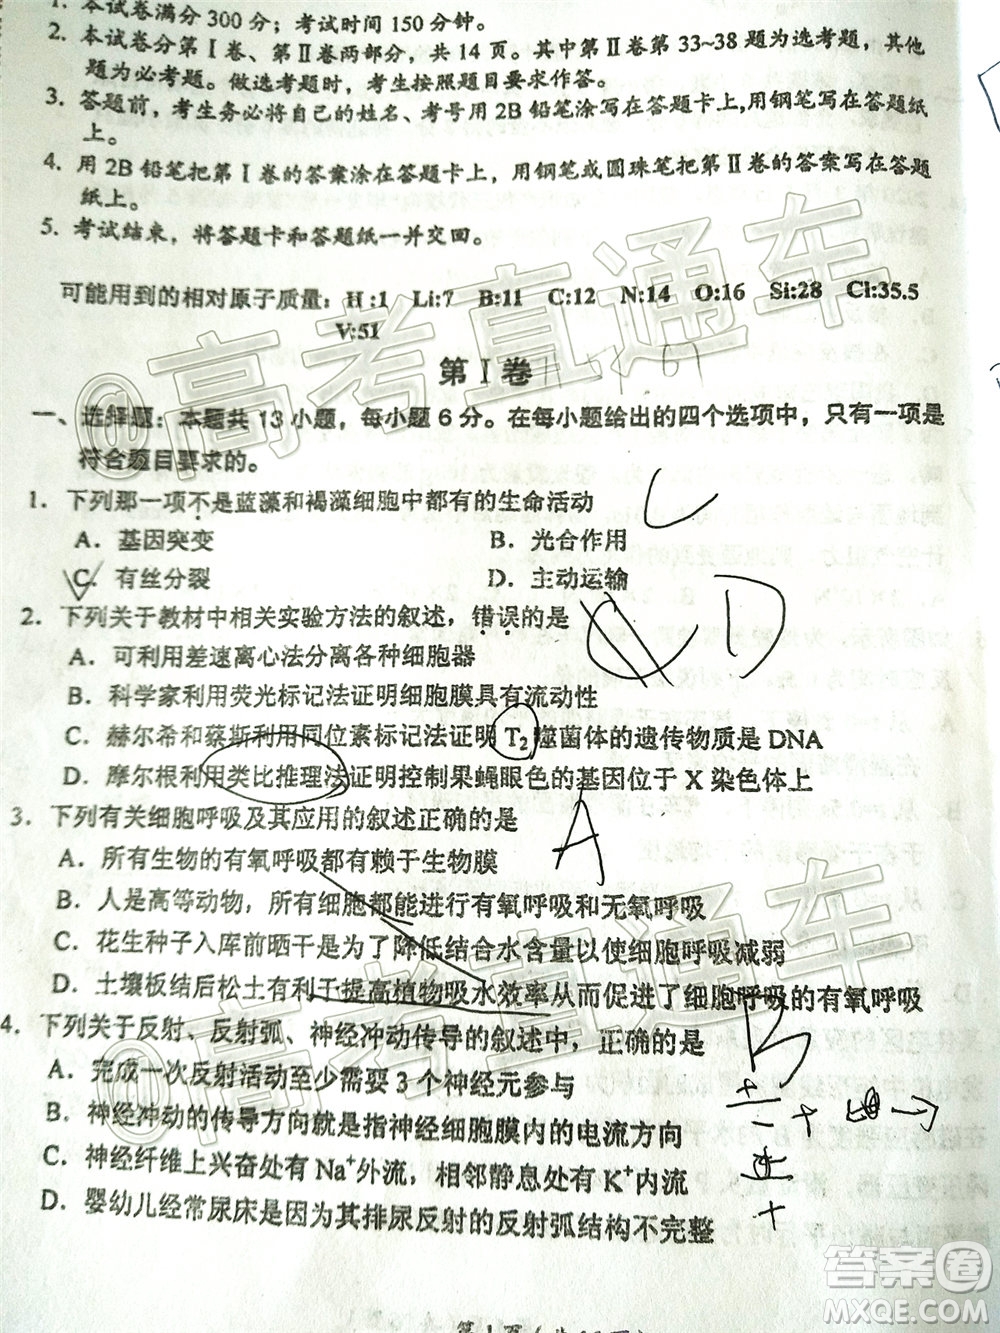 1. 本试卷满分 300 分；考试时间 150 分钟。
2. 本试卷分第Ⅰ卷、第Ⅱ卷两部分，共 14 页。其中第Ⅱ卷第 33~38 题为选考题，其他
题为必考题。做选考题时，考生按照题目要求作答。
3. 答题前，考生务必将自己的姓名、考号用 2B 铅笔涂写在答题卡上,用钢笔写在答题纸
上。
4. 用 2B 铅笔把第Ⅰ卷的答案涂在答题卡上，用钢笔或圆珠笔把第Ⅱ卷的答案写在答题
纸上。
5. 考试结束，将答题卡和答题纸一并交回。
可能用到的相对原子质量：H:1 Li:7 B:11 C:12 N:14 O:16 Si:28 Cl:35.5
V:51
第Ⅰ卷
一、选择题：本题共 13 小题，每小题 6 分。在每小题给出的四个选项中，只有一项是
符合题目要求的。
1. 下列那一项不是蓝藻和褐藻细胞中都有的生命活动 C
A．基因突变 B．光合作用
C．有丝分裂 D．主动运输
2．下列关于教材中相关实验方法的叙述，错误的是 D
A．可利用差速离心法分离各种细胞器
B．科学家利用荧光标记法证明细胞膜具有流动性
C．赫尔希和蔡斯利用同位素标记法证明 T2 噬菌体的遗传物质是 DNA
D．摩尔根利用类比推理法证明控制果蝇眼色的基因位于 X 染色体上
3．下列有关细胞呼吸及其应用的叙述正确的是 A
A．所有生物的有氧呼吸都有赖于生物膜
B．人是高等动物，所有细胞都能进行有氧呼吸和无氧呼吸
C．花生种子入库前晒干是为了降低结合水含量以使细胞呼吸减弱
D．土壤板结后松土有利于提高植物吸水效率从而促进了细胞呼吸的有氧呼吸
4．下列关于反射、反射弧、神经冲动传导的叙述中，正确的是 B
A．完成一次反射活动至少需要 3 个神经元参与
B．神经冲动的传导方向就是指神经细胞膜内的电流方向
C．神经纤维上兴奋处有 Na+外流，相邻静息处有 K+内流
D．婴幼儿经常尿床是因为其排尿反射的反射弧结构不完整
@高考直通车
@高考直通车
答案圈
MXQE.COM